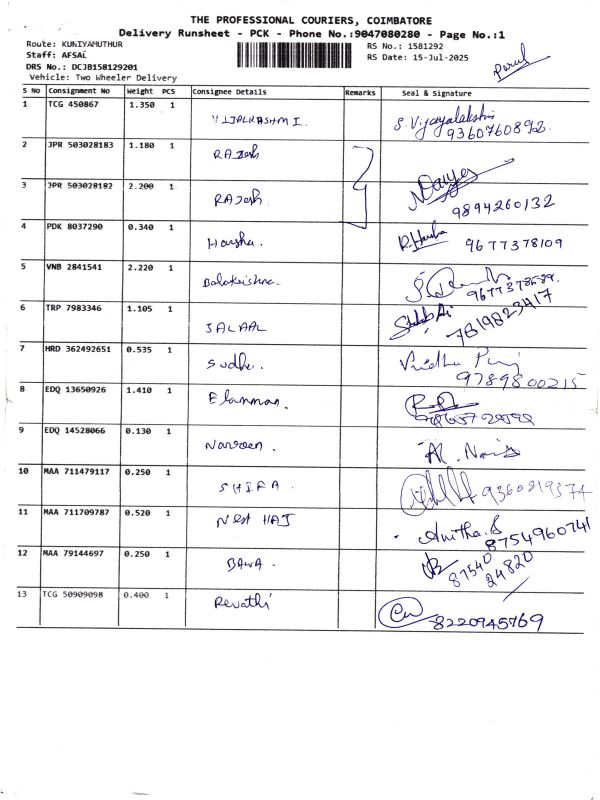 THE PROFESSIONAL COURIERS, COIMBATORE
Delivery Runsheet - PCK - Phone No.:9047080280 - Page No.:1
Route: KUNIYAMUTHUR RS No.: 1581292
Staff: AFSAL RS Date: 15-Jul-2025
DRS No.: DCJB158129201
Vehicle: Two Wheeler Delivery
S No Consignment No Weight PCS Consignee Details Remarks Seal & Signature
1 TCG 450867 1.350 1 VIJAYLKASHMI S. Vijayalakshmi
9360760892
2 JPR 503028183 1.180 1 RAJesh
3 JPR 503028182 2.200 1 RAJesh.
9894260132
4 PDK 8037290 0.340 1 Harsha. R. Harsha 9677378109
5 VNB 2841541 2.220 1 Balakrishna.
6 TRP 7983346 1.105 1 JALAAL
7819823417
7 HRD 362492651 0.535 1 Sudha.
9789800215
8 EDQ 13650926 1.410 1
9 EDQ 14528066 0.130 1 Naveen.
10 MAA 711479117 0.250 1 SHIFA. 9360219374
11 MAA 711709787 0.520 1 Nest HAJ Anitha.S
8754960741
12 MAA 79144697 0.250 1 BAWA. 87540
24820
13 TCG 50909098 0.400 1 Revathi
8220945769